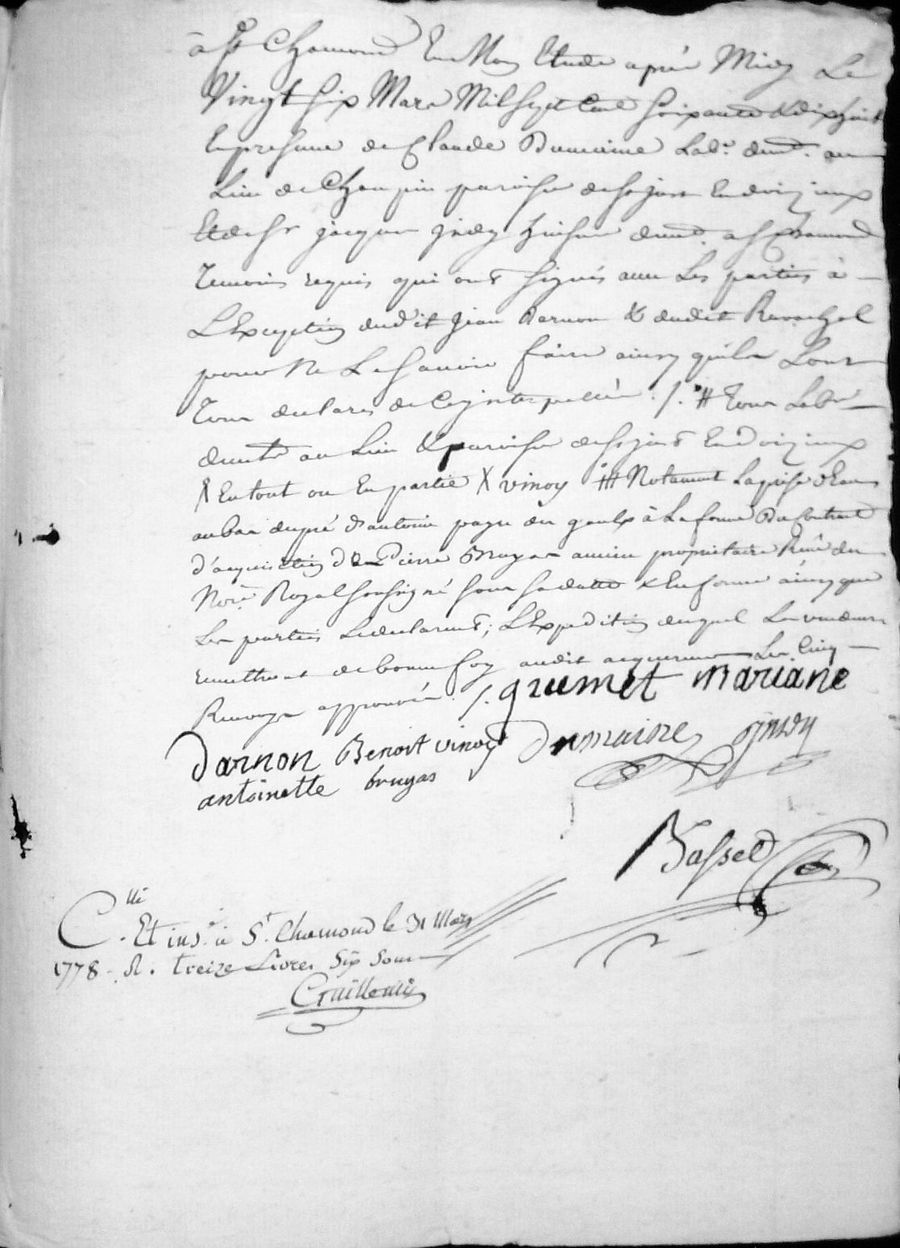 à St Chamond En Mon Etude après Midy Le
Vingt six Mars Mil sept Cent soixante & dix huit
En presence de Claude Dumaine Labr. demt. au
Lieu de paroisse de st just En doizieux
Et de Sr jacques huissier demt. a st chamond
Temoins requis qui ont signés avec Les parties à
L'Exception dudit jean Darnon & dudit
pour Ne Le Savoir faire ainsy qu'ils L'ont
Tous declaré de Ce interpellés ./. # Tous
demts au Lieu & paroisse de st just En doizieux
X En tout ou En partie X vinoy ## Notament La prise d'Eau
au bas du pré d'antoine page à La forme Du Contrat
d'acquisition de Pierre Bruyas ancien propriétaire Reçu du
Nore. Royal soussigné sous sa datte & En forme ainsy que
Les parties Le declarent; L'Expedition duquel Les vendeurs
Remettront de bonne foy audit acquereur Les Cinq
Renvoys approuvés ./. grumet mariane
darnon Benoit vinoy dumaine
antoinette bruyas
Basset
Clle
. Et ins. à St. Chamond le 31 Mars
1778 - R. treize Livres Six Sous
Guillemin